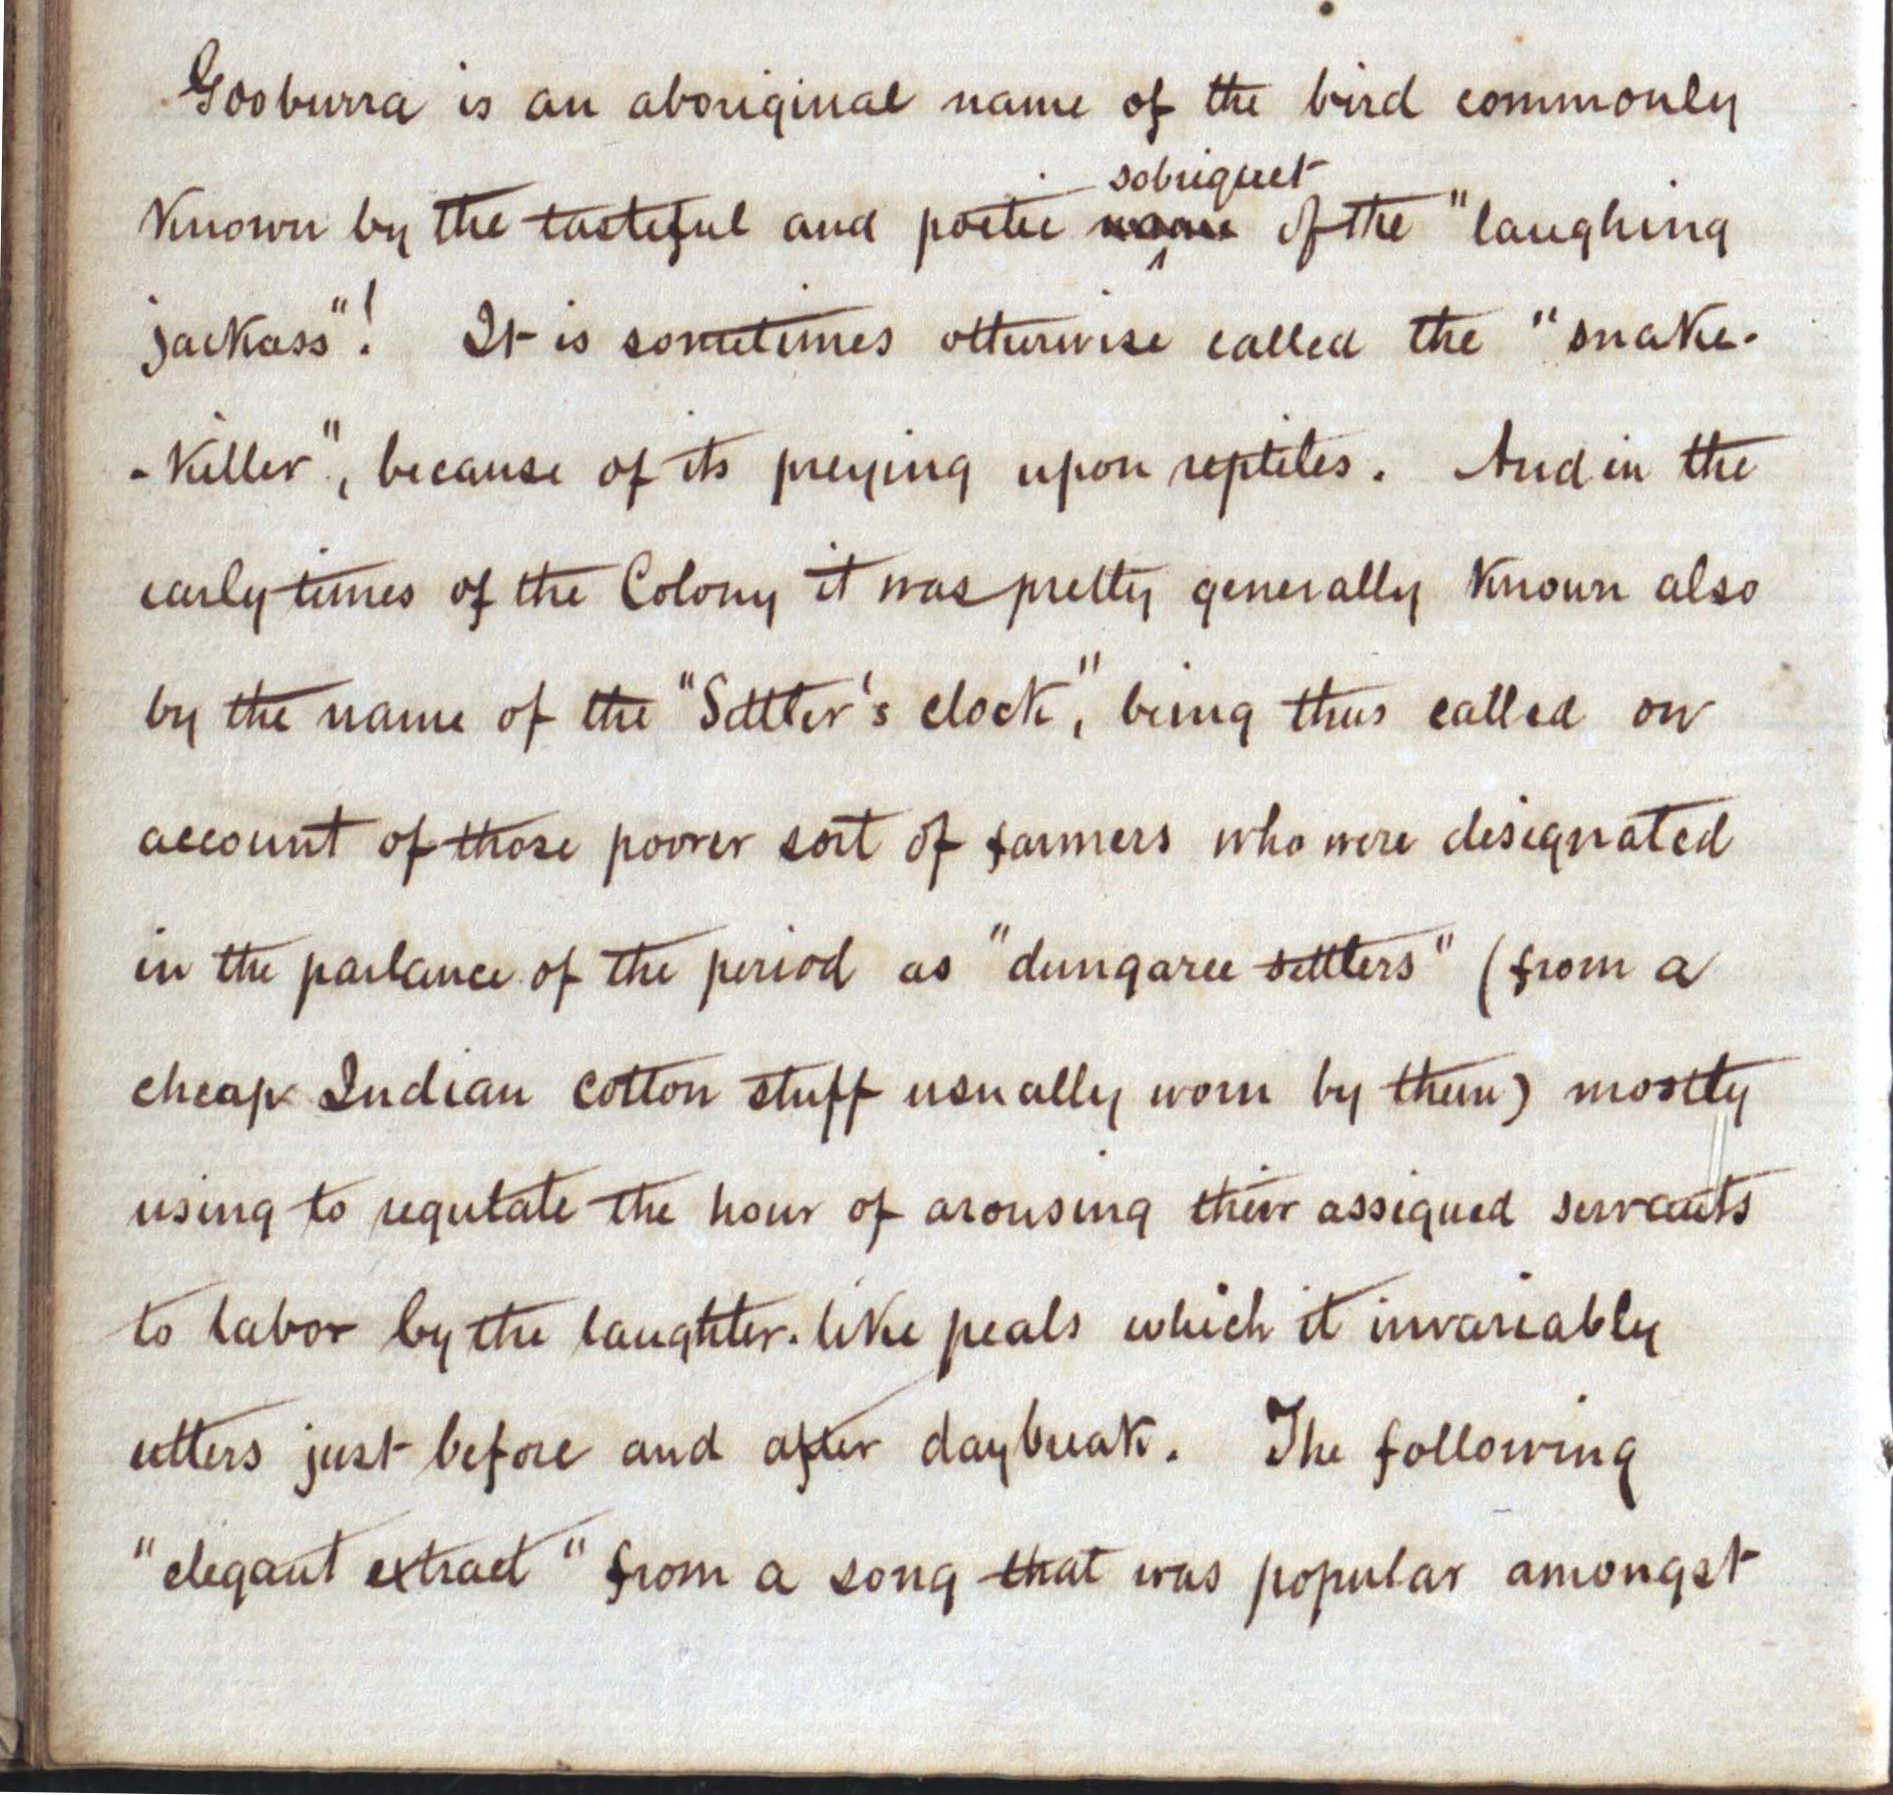 Gooburra is an aboriginal name of the bird commonly
sobriquet
known by the tasteful and poetic name of the "laughing
jackass"! It is sometimes otherwise called the "snake-
-killer", because of its preying upon reptiles. And in the
early times of the Colony it was pretty generally known also
by the name of the "Settler's clock", being thus called on
account of those poorer sort of farmers who were designated
in the parlance of the period as "dungaree settlers" (from a
cheap Indian cotton stuff usually worn by them) mostly
using to regulate the hour of arousing their assigned servants
to labor by the laughter-like peals which it invariably
utters just before and after daybreak. The following
"elegant extract" from a song that was popular amongst